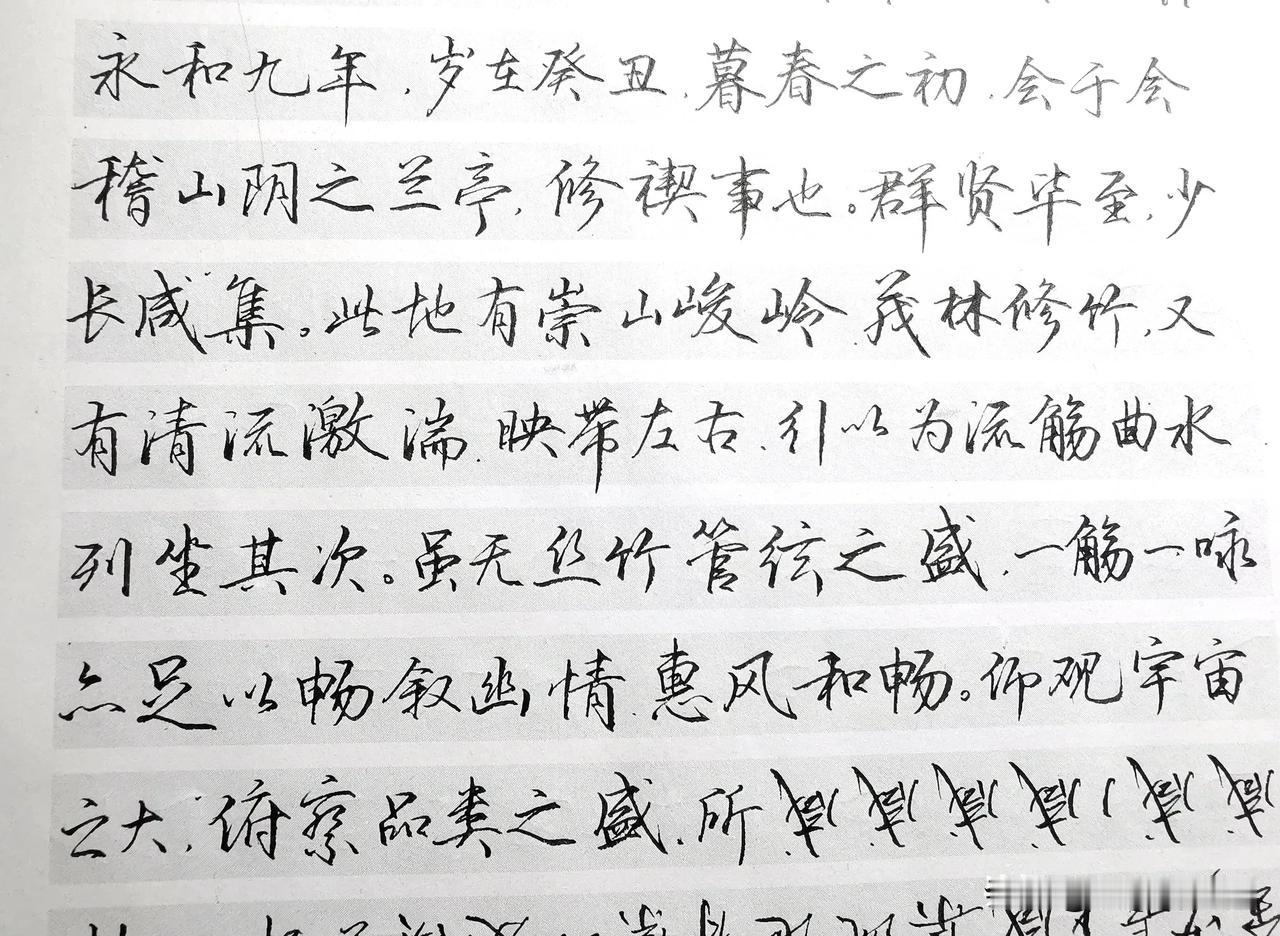 永和九年，岁在癸丑，暮春之初，会于会
稽山阴之兰亭，修禊事也。群贤毕至，少
长咸集。此地有崇山峻岭，茂林修竹，又
有清流激湍，映带左右，引以为流觞曲水
列坐其次。虽无丝竹管弦之盛，一觞一咏
亦足以畅叙幽情，惠风和畅。仰观宇宙
之大，俯察品类之盛，所